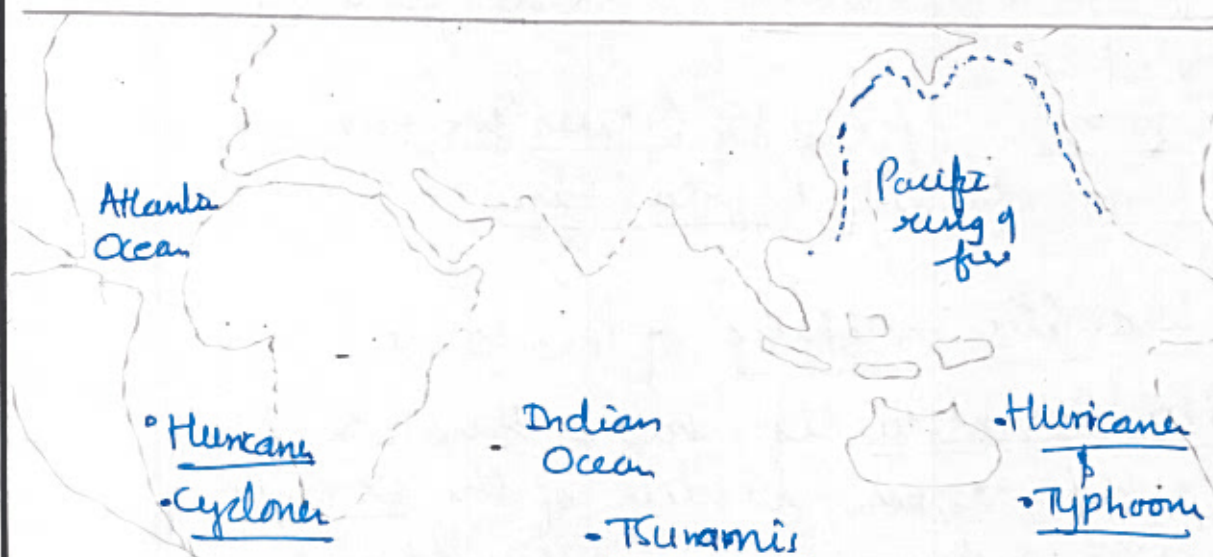 Atlantic
Ocean
Pacific
ring of
fire
• Hurricanes
• Cyclones
Indian
Ocean
• Tsunamis
• Hurricanes
&
• Typhoons